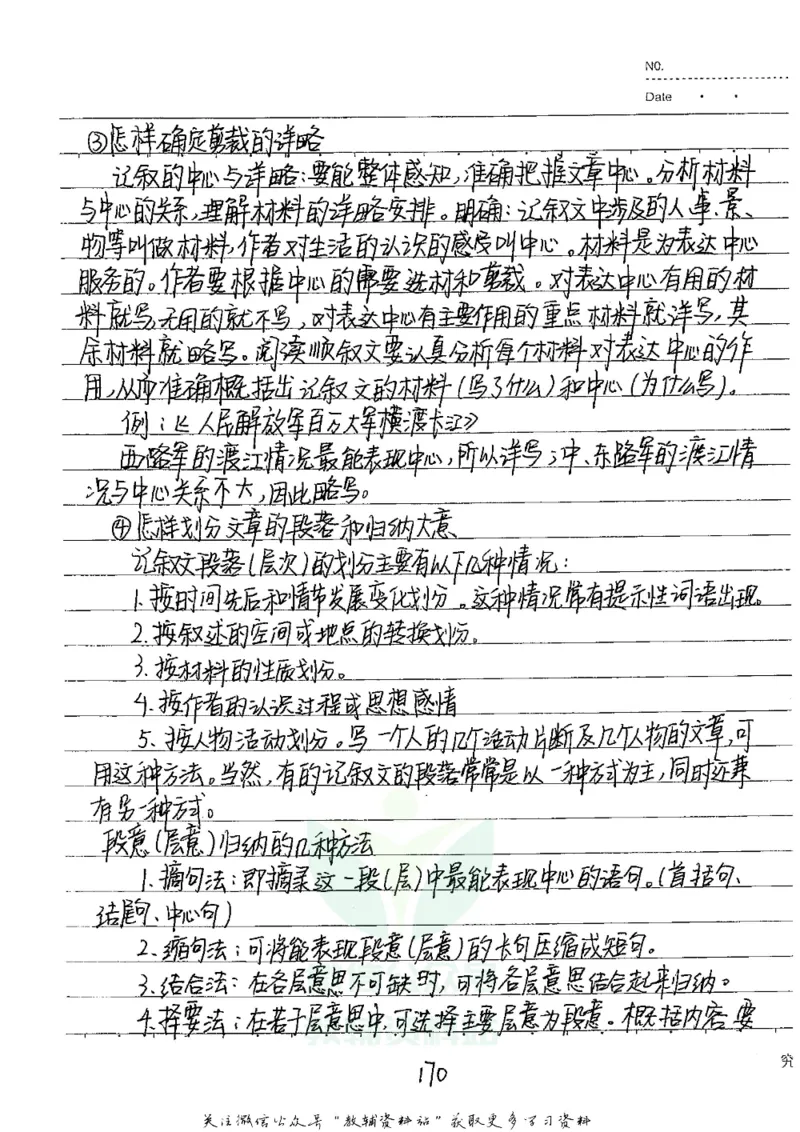 NO.
Date
③怎样确定剪裁的详略
记叙的中心与详略:要能整体感知,准确把握文章中心。分析材料
与中心的关系,理解材料的详略安排。明确:记叙文中涉及的人、事、景、
物等叫做材料,作者对生活的认识的感受叫中心。材料是为表达中心
服务的。作者要根据中心的需要选材和剪裁。对表达中心有用的材
料就写,无用的就不写,对表达中心有主要作用的重点材料就详写,其
余材料就略写。阅读顺叙文要认真分析每个材料对表达中心的作
用,从而准确概括出记叙文的材料(写了什么)和中心(为什么写)。
例:《人民解放军百万大军横渡长江》
西路军的渡江情况最能表现中心,所以详写;中、东路军的渡江情
况与中心关系不大,因此略写。
④怎样划分文章的段落和归纳大意、
记叙文段落(层次)的划分主要有以下几种情况:
1.按时间先后和情节发展变化划分。这种情况常有提示性词语出现。
2.按叙述的空间或地点的转换划分。
3.按材料的性质划分。
4.按作者的认识过程或思想感情
5.按人物活动划分。写一个人的几个活动片断及几个人物的文章,可
用这种方法。当然,有的记叙文的段落常常是以一种方式为主,同时还兼
有另一种方式。
段意(层意)归纳的几种方法
1.摘句法:即摘录这一段(层)中最能表现中心的语句。(首括句、
结尾句、中心句)
2.缩句法:可将能表现段意(层意)的长句压缩成短句。
3.结合法:在各层意思不可缺时,可将各层意思结合起来归纳。
4.择要法:在若干层意思中,可选择主要层意为段意。概括内容要
170
究
关注微信公众号"教辅资料站"获取更多学习资料